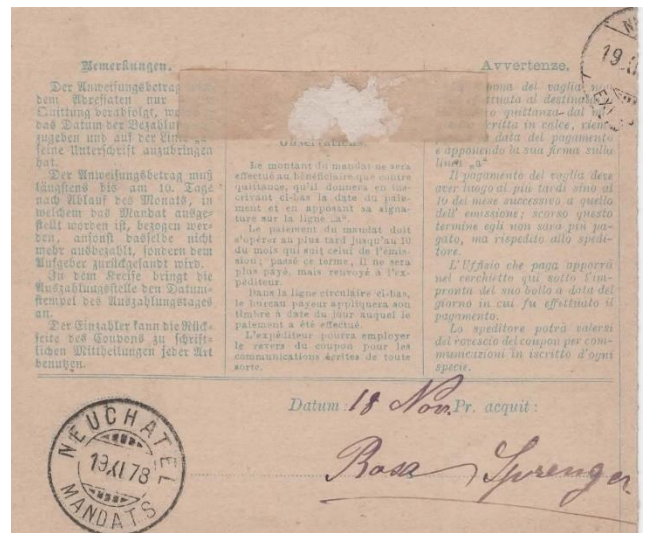 Bemerkungen.
Der Anweisungsbetrag
dem Adressaten nur
Quittung verabfolgt,
das Datum der Bezahlung
zugeben und auf der Linie
seine Unterschrift anzubringen
hat.
Der Anweisungsbetrag muß
längstens bis am 10. Tage
nach Ablauf des Monats, in
welchem das Mandat ausge-
stellt worden ist, bezogen wer-
den, ansonst dasselbe nicht
mehr ausbezahlt, sondern dem
Aufgeber zurückgesandt wird.
In dem Kreise bringt die
Auszahlungsstelle den Datum-
stempel des Auszahlungstages
an.
Der Einzahler kann die Rück-
seite des Coupons zu schrift-
lichen Mittheilungen jeder Art
benutzen.
Observations.
Le montant du mandat ne sera
effectué au bénéficiaire que contre
quittance, qu'il donnera en ins-
crivant ci-bas la date du paie-
ment et en apposant sa signa-
ture sur la ligne „a“.
Le paiement du mandat doit
s'opérer au plus tard jusqu'au 10
du mois qui suit celui de l'émis-
sion; passé ce terme, il ne sera
plus payé, mais renvoyé à l'ex-
péditeur.
Dans la ligne circulaire ci-bas,
le bureau payeur appliquera son
timbre à date du jour auquel le
paiement a été effectué.
L'expéditeur pourra employer
le revers du coupon pour les
communications écrites de toute
sorte.
Avvertenze.
del vaglia
al destina
quittanza dal
in calce,
data del pagamento
e apponendo la sua firma sulla
linea „a“
Il pagamento del vaglia deve
aver luogo al più tardi sino al
10 del mese successivo a quello
dell' emissione; scorso questo
termine egli non sarà più pa-
gato, ma rispedito allo spedi-
tore.
L'Uffizio che paga apporrà
nel cerchietto qui sotto l'im-
pronta del suo bollo a data del
giorno in cui fu effettuato il
pagamento.
Lo speditore potrà valersi
del rovescio del coupon per com-
municazioni in iscritto d'ogni
specie.
Datum: 18 Nov. Pr. acquit:
NEUCHATEL
19 XI 78
MANDATS
Rosa Sprenger